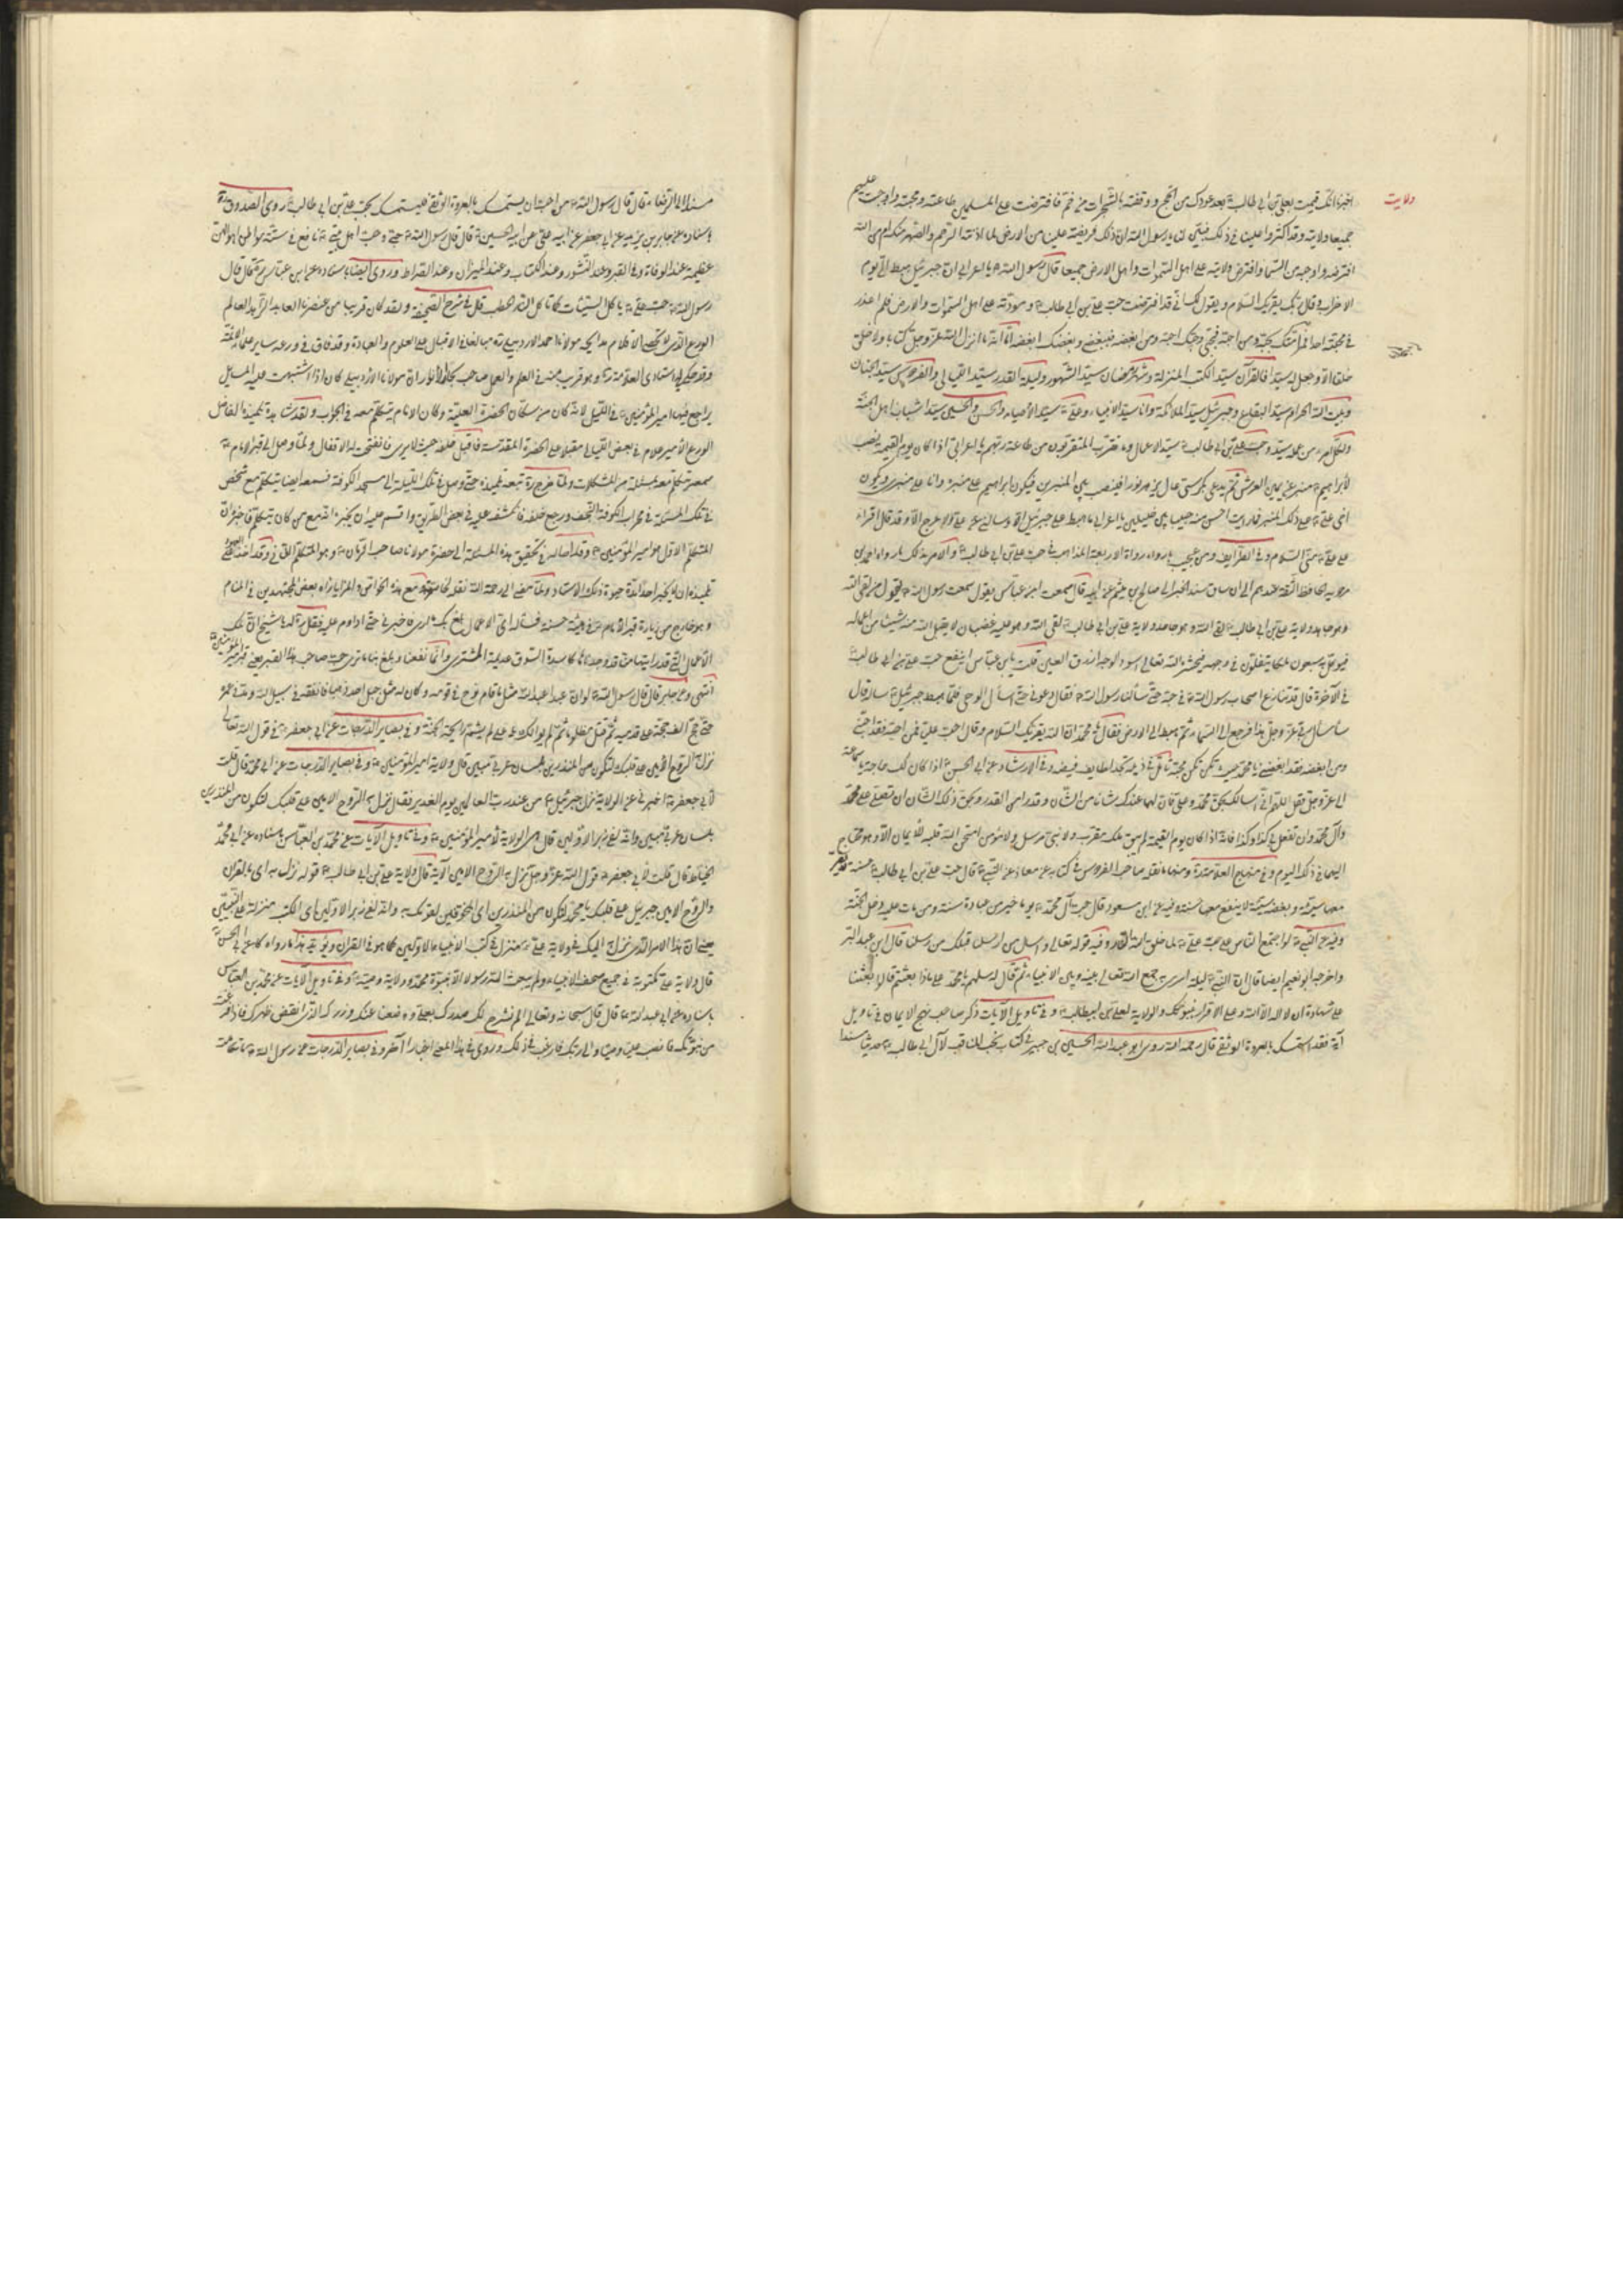 ولايت
اخبرنا انك قمت بعلي بن ابي طالب بعد عودك من الحج ووقفته بالشجرات من خم فافترضت على المسلمين طاعته ومحبته واوجبت عليهم
جميعا ولايته وقد اكثروا علينا في ذلك فبين لنا يا رسول الله اذلك فريضة علينا من الارض لما ادنته الرحم والصهر منك ام من الله
افترضه واوجبه من السماء وافترض ولايته على اهل السموات واهل الارض جميعا قال رسول الله يا اعرابي ان جبرئيل هبط الي يوم
الاحزاب وقال ربك يقرئك السلام ويقول لك اني قد افترضت حب علي بن ابي طالب ومودته على اهل السموات والارض فلم اعذر
في محبته احدا فمر امتك بحبه فمن احبه فبحبي وحبك احبه ومن ابغضه فببغضي وبغضك ابغضه اما انه ما انزل الله عز وجل كتابا ولا خلق
خلقا الا وجعل له سيدا فالقرآن سيد الكتب المنزلة وشهر رمضان سيد الشهور وليلة القدر سيد الليالي والفردوس سيد الجنان
وبيت الله الحرام سيد البقاع وجبرئيل سيد الملائكة وانا سيد الانبياء وعلي سيد الاوصياء والحسن والحسين سيدا شباب اهل الجنة
ولكل امرء من عمله سيد وحب علي بن ابي طالب سيد الاعمال وما تقرب المتقربون من طاعة ربهم يا اعرابي اذا كان يوم القيمة ينصب
لابراهيم منبر عن يمين العرش ثم يدعى بكرسي عال يزهر نورا فينصب بين المنبرين فيكون ابراهيم على منبره وانا على منبري ويكون
اخي علي على ذلك المنبر فما رايت احسن منه حبيبا بين خليلين يا اعرابي ما هبط علي جبرئيل الا وسالني عن علي ولا عرج الا وقد قال اقرا
على علي مني السلام وفي الطرايف ومن عجيب ما رواه رواة الاربعة المذاهب في حب علي بن ابي طالب والامر بذلك ما رواه احمد بن
مردويه الحافظ الثقة عندهم الى ان ساق سند الخبر الى صالح بن ميثم عن ابيه قال سمعت ابن عباس يقول سمعت رسول الله يقول من لقي الله
وهو جاحد ولاية علي بن ابي طالب لقي الله وهو عليه غضبان لا يقبل الله منه شيئا من اعماله
فيوكل به سبعون ملكا يتفلون في وجهه فيحشره الله تعالى اسود الوجه ازرق العين قلت يابن عباس اينفع حب علي بن ابي طالب
في الآخرة قال قد تنازع اصحاب رسول الله في حبه حتى سالنا رسول الله فقال دعوني حتى اسأل الوحي فلما هبط جبرئيل ساله قال
ساسأل ربي عز وجل عن هذا فرجع الى السماء ثم هبط الى الارض فقال يا محمد ان الله يقرئك السلام وقال احب عليا فمن احبه فقد احبني
ومن ابغضه فقد ابغضني يا محمد حيث تكن يكن محبه
الى عز وجل فقل اللهم اني اسالك بحق محمد وعلي فان لهما عندك شانا من الشان وقدرا من القدر وبحق ذلك الشان ان تصلي على محمد
وآل محمد وان تفعل بي كذا وكذا فانه اذا كان يوم القيمة لم يبق ملك مقرب ولا نبي مرسل ولا مؤمن امتحن الله قلبه للايمان الا وهو محتاج
اليهما في ذلك اليوم وفي منهاج العلامة ومنها ما نقله صاحب الفردوس في كتابه عن معاذ عن النبي قال حب علي بن ابي طالب حسنة لا تضر
معها سيئة وبغضه سيئة لا ينفع معها حسنة وفيه عن ابن مسعود قال حب آل محمد يوما خير من عبادة سنة ومن مات عليه دخل الجنة
وفيه عن النبي لو اجتمع الناس على حب علي لما خلق الله النار وفيه قوله تعالى واسأل من ارسلنا قبلك من رسلنا قال ابن عبد البر
واخرجه ابو نعيم ايضا قال ان النبي ليلة اسري به جمع الله تعالى بينه وبين الانبياء ثم قال له سلهم يا محمد على ماذا بعثتم قالوا بعثنا
على شهادة ان لا اله الا الله وعلى الاقرار بنبوتك والولاية لعلي بن ابيطالب وفي تاويل الآيات ذكر صاحب نهج الايمان في تاويل
آية فقد استمسك بالعروة الوثقى قال رحمه الله روى ابو عبد الله الحسين بن جبير في كتاب نخب المناقب لآل ابي طالب حديثا مسندا
مسندا الى الرضا قال قال رسول الله من احب ان يستمسك بالعروة الوثقى فليستمسك بحب علي بن ابي طالب روى الصدوق
باسناده عن جابر بن يزيد عن ابي جعفر عن ابيه علي عن ابيه الحسين قال قال رسول الله حبي وحب اهل بيتي نافع في سبعة مواطن اهوالهن
عظيمة عند الوفاة وفي القبر وعند النشور وعند الكتاب وعند الميزان وعند الصراط وروى ايضا باسناده عن ابن عباس قال قال
رسول الله حب علي ياكل السيئات كما تاكل النار الحطب قال في شرح الصحيفة ولقد كان قريبا من عصرنا العابد الزاهد العالم
الورع الذي مولانا احمد الاردبيلي الاقبال على العلوم والعبادة وقد فاق في ورعه ساير علمائنا
وقد حكى لي استادي العلامة وهو قريب منه في العلم والعمل صاحب بحار الانوار ان مولانا الاردبيلي كان اذا اشتبهت عليه المسايل
يراجع فيها امير المؤمنين في الليل لانه كان من سكان الحضرة العلية وكان الامام يتكلم معه في الجواب ولقد شاهده تلميذه الفاضل
الورع الامير علام في بعض الليالي مقبلا على الحضرة المقدسة فاقبل خلفه حيث لا يرى فانفتحت له الاقفال ولما وصل الى قبر الامام
سمعه يتكلم معه بمسئلة من المشكلات ولما خرج تبعه تلميذه حتى وصل في تلك الليلة الى مسجد الكوفة فسمعه ايضا يتكلم مع شخص
في تلك المسئلة في محراب الكوفة ورجع خلفه فانكشف عليه في بعض الطريق واقسم عليه ان يخبره مع من كان يتكلم فاخبره ان
المتكلم الاول هو امير المؤمنين وقد احاله في تحقيق هذه المسئلة الى حضرة مولانا صاحب الزمان وهو المتكلم الثاني وقد اخذ على
تلميذه ان لا يخبر احدا مدة حيوة ذلك الاستاد ولما مضى الى رحمة الله مع هذه الخواص والمزايا راه بعض المجتهدين في المنام
وهو خارج من زيارة قبر الامام في هيئة حسنة فساله اي الاعمال بلغ بك ما ارى فاخبرني حتى اداوم عليه فقال له يا شيخ ان تلك
الاعمال التي قد رايتها منا قد وجدناها كاسدة السوق عديمة المشتري وانما نفعنا وبلغ بنا ما ترى حب صاحب هذا القبر يعني قبر امير المؤمنين
انتهى وعن جابر قال قال رسول الله لو ان عبدا عبد الله مثل ما قام نوح في قومه وكان له مثل جبل احد ذهبا فانفقه في سبيل الله ومد في عمره
حتى حج الف حجة على قدميه ثم قتل مظلوما ثم لم يوالك يا علي لم يشم رايحة الجنة وفي بصاير الدرجات عن ابي جعفر في قول الله تعالى
نزل به الروح الامين على قلبك لتكون من المنذرين بلسان عربي مبين قال ولاية امير المؤمنين وفي بصاير الدرجات عن ابي محمد قال قلت
لابي جعفر اخبرني عن الولاية نزل جبرئيل بها من عند رب العالمين يوم الغدير فقال نزل به الروح الامين على قلبك لتكون من المنذرين
بلسان عربي مبين وانه لفي زبر الاولين قال هي الولاية لامير المؤمنين وفي تاويل الآيات عن محمد بن العباس باسناده عن ابي محمد
الحناط قال قلت لابي جعفر قول الله عز وجل نزل به الروح الامين الآية قال ولاية علي بن ابي طالب قوله نزل به اي بالقرآن
والروح الامين جبرئيل على قلبك يا محمد لتكون من المنذرين اي المخوفين لقومك به وانه لفي زبر الاولين اي الكتب منزلة على النبيين
يعني ان هذا الامر الذي نزل به اليك في ولاية علي منزل في كتب الانبياء الاولين كما هو في القرآن ويؤيد هذا ما رواه عن ابي الحسن
قال ولاية علي مكتوبة في جميع صحف الانبياء ولم يبعث الله رسولا الا بنبوة محمد وولاية وصيه وفي تاويل الآيات عن محمد بن العباس
باسناده عن ابي عبد الله قال قال سبحانه وتعالى الم نشرح لك صدرك بعلي ووضعنا عنك وزرك الذي انقض ظهرك فاذا فرغت
من نبوتك فانصب عليا وصيا والى ربك فارغب في ذلك وروى في هذا المعنى اخبارا آخر وفي بصاير الدرجات عن رسول الله